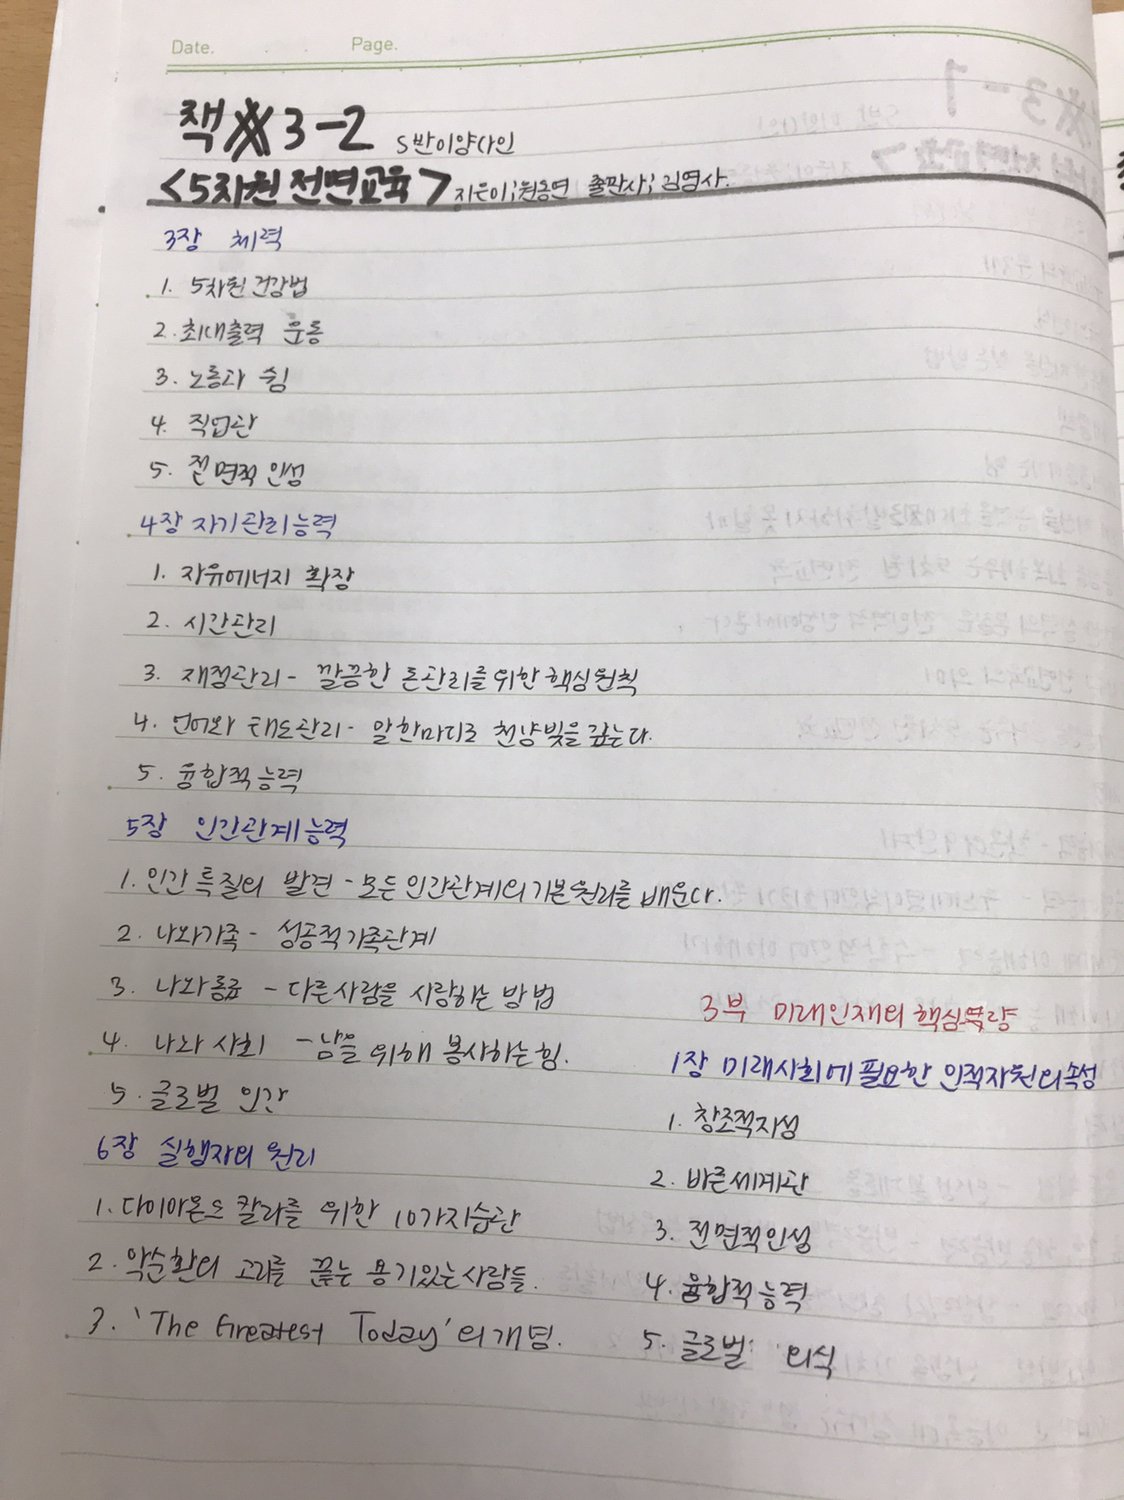 Date. . . Page.
책 3-2 S반이양다인
<5차원 전면교육> 지은이;원동연 출판사; 김영사.
3장 체력
1. 5차원 건강법
2. 최대출력 운동
3. 노동과 쉼
4. 직업관
5. 전면적 인성
4장 자기관리능력
1. 자유에너지 확장
2. 시간관리
3. 재정관리 - 깔끔한 돈관리를 위한 핵심원칙
4. 언어와 태도관리 - 말한마디로 천냥빚을 갚는다.
5. 융합적능력
5장 인간관계능력
1. 인간 특질의 발견 - 모든 인간관계의 기본원리를 배운다.
2. 나와가족 - 성공적가족관계
3. 나와동료 - 다른사람을 사랑하는 방법
4. 나와 사회 - 남을 위해 봉사하는힘.
5. 글로벌 인간
6장 실행자의 원리
1. 다이아몬드 칼라를 위한 10가지습관
2. 악순환의 고리를 끊는 용기있는사람들.
3. 'The Greatest Today'의 개념.
3부 미래인재의 핵심역량
1장 미래사회에 필요한 인적자원의속성
1. 창조적지성
2. 바른세계관
3. 전면적인성
4. 융합적능력
5. 글로벌 의식